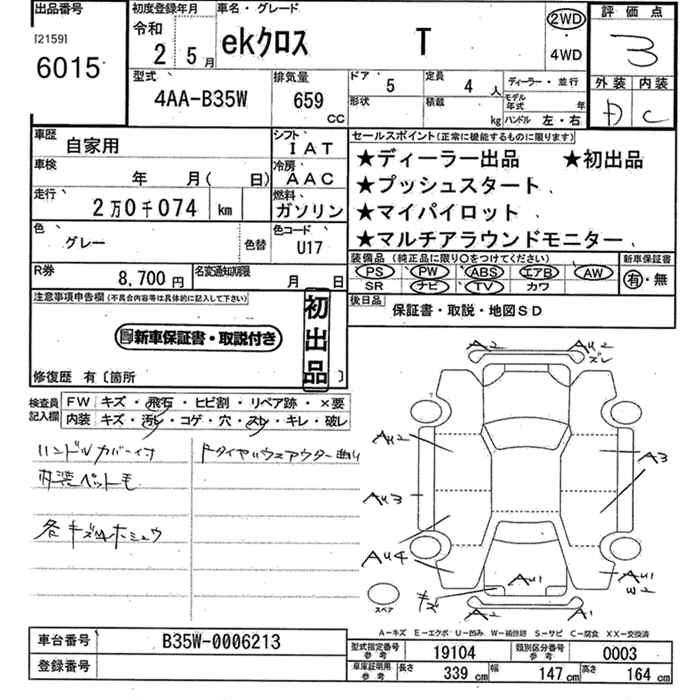 出品番号
[2159]
6015
初度登録年月
令和
2 年 5 月
車名・グレード
ekクロス T
2WD
・
4WD
評価点
3
外装 内装
D C
型式
4AA-B35W
排気量
659
CC
ドア
5
定員
4 人
形状
積載
kg
ディーラー・並行
モデル年式 年
ハンドル 左・右
車歴
自家用
シフト
IAT
車検
年 月( 日)
冷房
AAC
走行
2万0千074 km
燃料
ガソリン
色
グレー
色替
色コード
U17
R券
8,700 円
名変通知期限
月 日
セールスポイント(正常に機能するものに限ります)
★ディーラー出品 ★初出品
★プッシュスタート
★マイパイロット
★マルチアラウンドモニター
装備品 (純正品に限り○をつけてください)
PS PW ABS エアB AW
SR ナビ TV カワ
新車保証書
有・無
後日品
保証書・取説・地図SD
注意事項申告欄(不具合内容等は具体的に記入して下さい)
新車保証書・取説付き
初出品
修復歴 有〔箇所 〕
検査員記入欄
FW キズ・飛石・ヒビ割・リペア跡・×要
内装 キズ・汚レ・コゲ・穴・スレ・キレ・破レ
ハンドルカバー付
内装ペットモウ
各キズ凹ホシュウ
A2
AU2
ズレ
AU2
A3
AU3
AU4
AU1
AU1
W2
キズ
A2
A1
スペア
A-キズ E-エクボ U-凹み W-補修跡 S-サビ C-腐食 XX-交換済
車台番号
B35W-0006213
登録番号
型式指定番号
参考
19104
類別区分番号
参考
0003
車庫証明用
参考
長さ 339 cm
幅 147 cm
高さ 164 cm